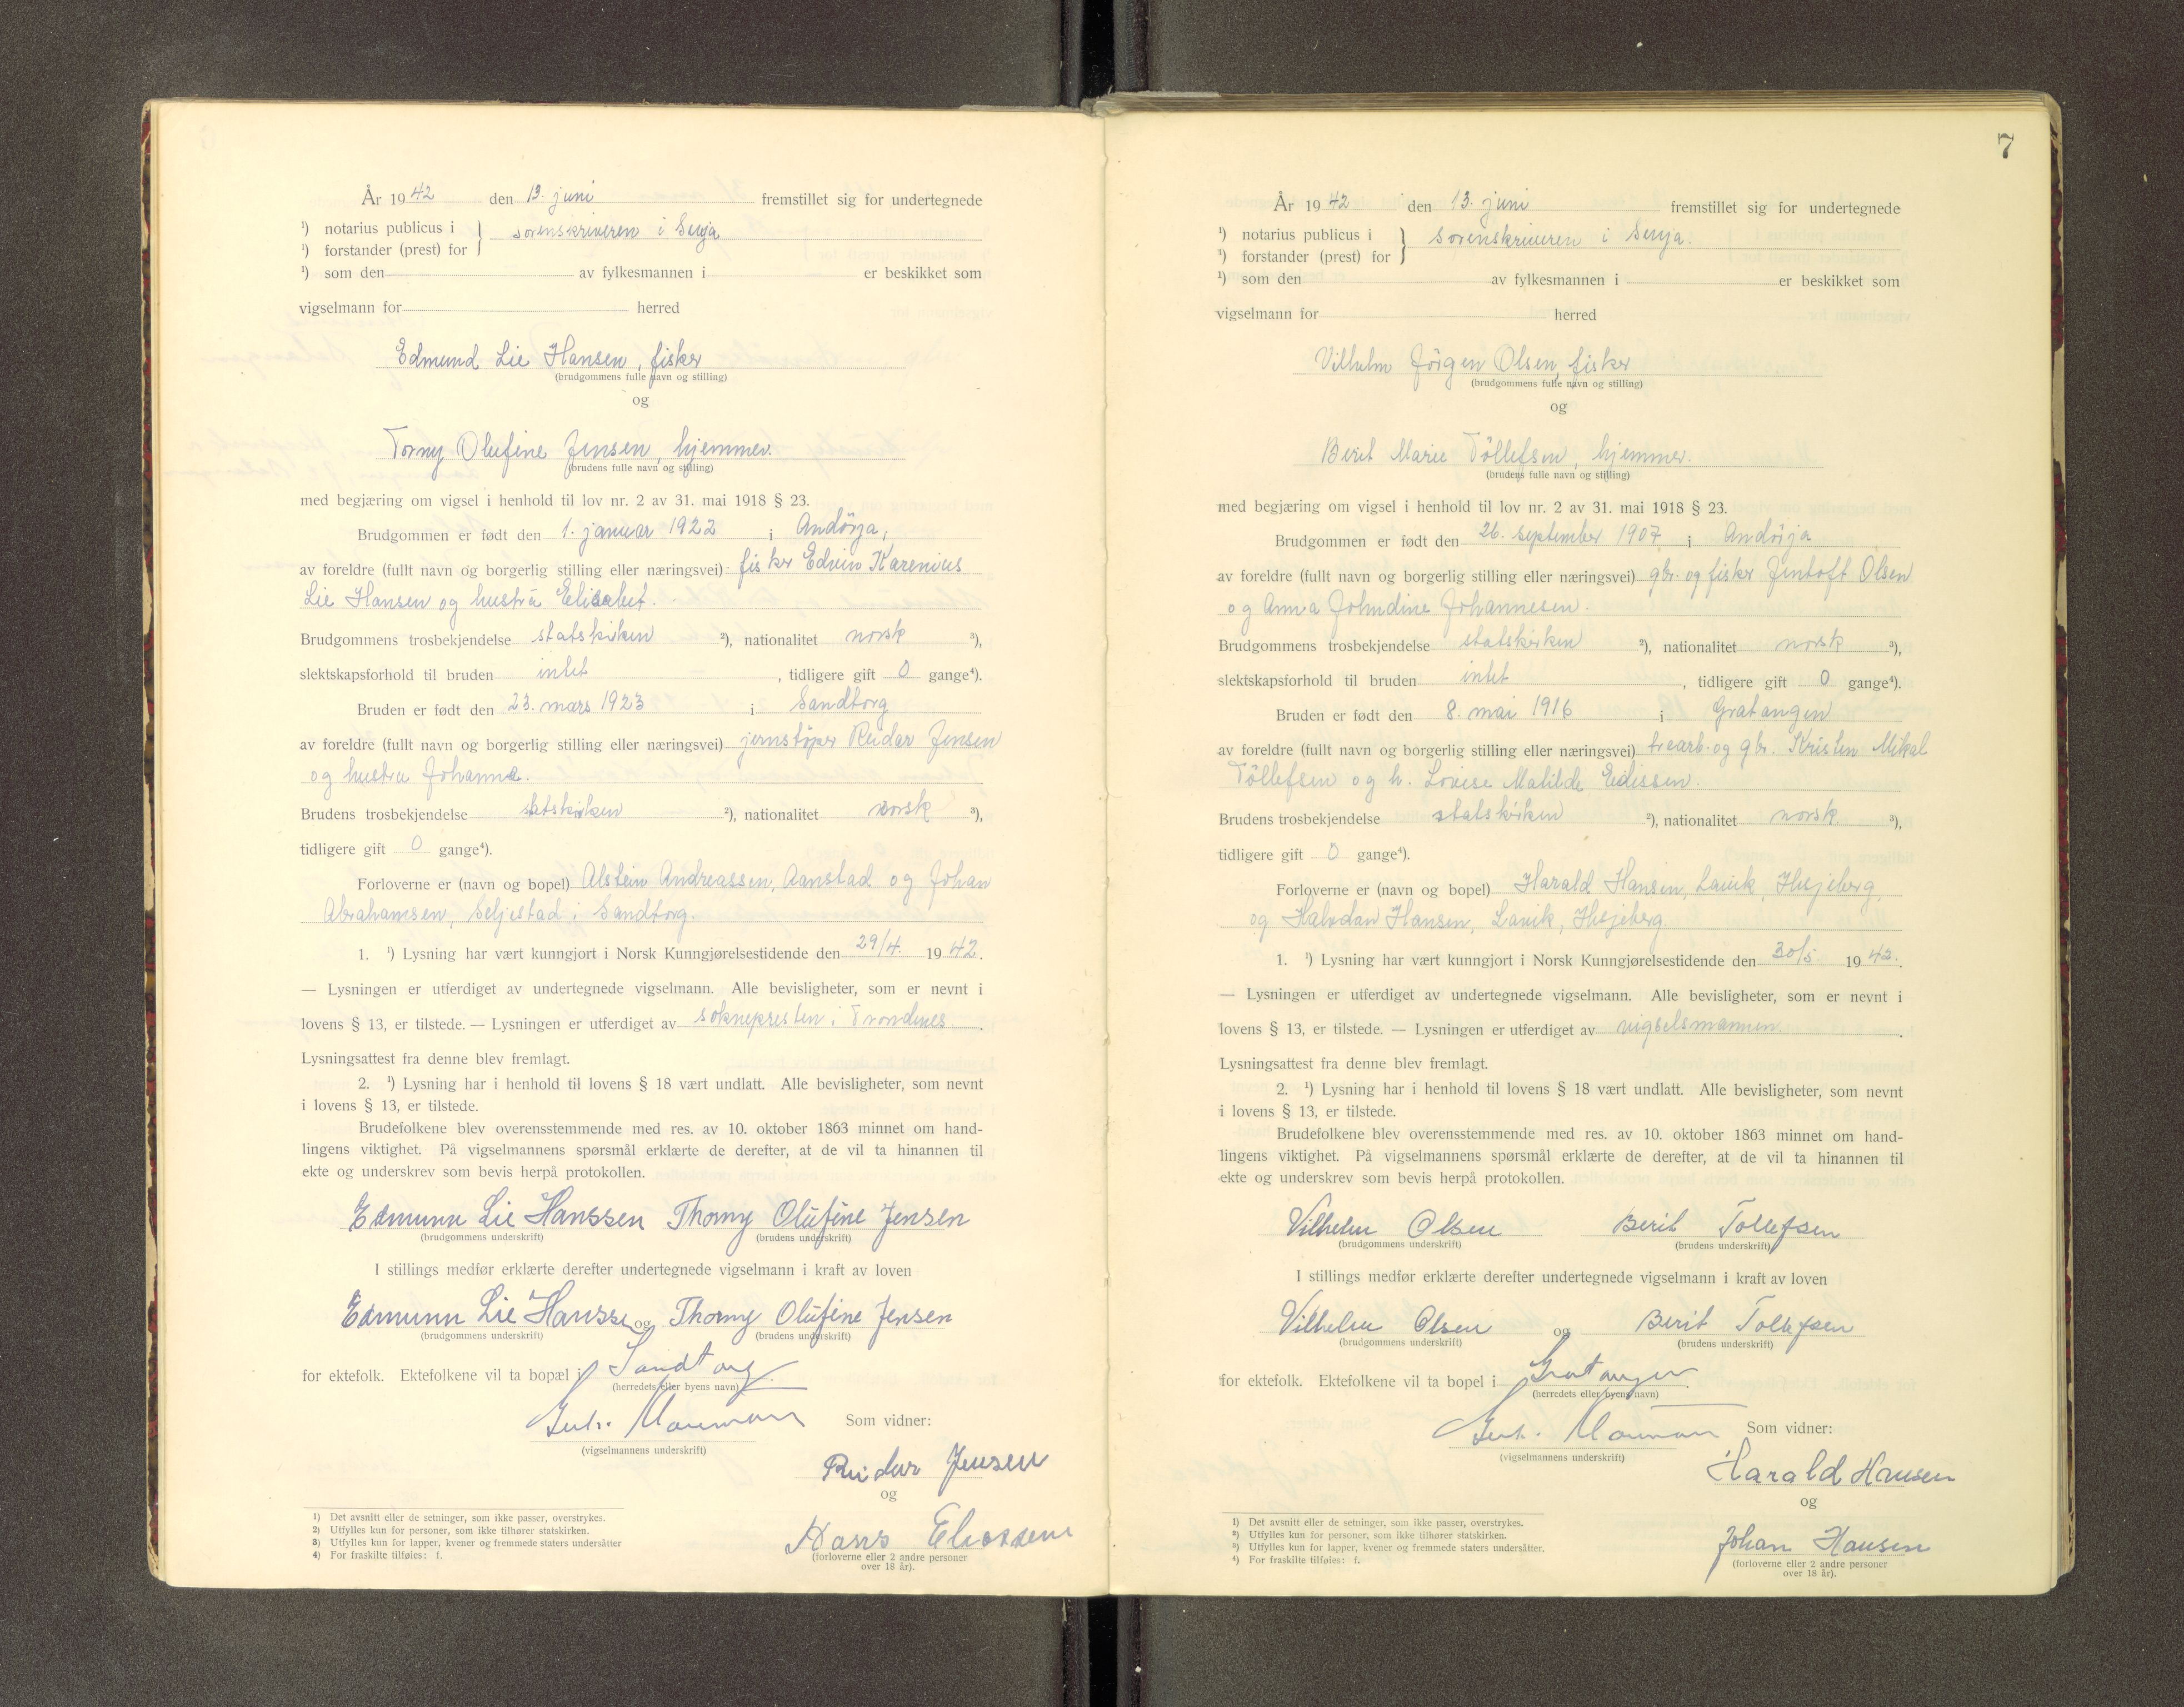 År 1942 den 13. juni fremstillet sig for undertegnede
¹) notarius publicus i } sorenskriveren i Senja
¹) forstander (prest) for
¹) som den av fylkesmannen i er beskikket som
vigselmann for herred
Edmund Lie Hansen, fisker
(brudgommens fulle navn og stilling)
og
Torny Olufine Jensen, hjemmev.
(brudens fulle navn og stilling)
med begjæring om vigsel i henhold til lov nr. 2 av 31. mai 1918 § 23.
Brudgommen er født den 1. januar 1922 i Andörja,
av foreldre (fullt navn og borgerlig stilling eller næringsvei) fisker Edvin Karenius
Lie Hansen og hustru Elisabet.
Brudgommens trosbekjendelse statskirken ²), nationalitet norsk ³),
slektskapsforhold til bruden intet — , tidligere gift 0 gange⁴).
Bruden er født den 23. mars 1923 i Sandtorg
av foreldre (fullt navn og borgerlig stilling eller næringsvei) jernstöper Reidar Jensen
og hustru Johanna.
Brudens trosbekjendelse statskirken ²), nationalitet norsk ³),
tidligere gift 0 gange⁴).
Forloverne er (navn og bopel) Alstein Andreassen, Aanstad og Johan
Abrahamsen, Seljestad i Sandtorg.
1. ¹) Lysning har vært kunngjort i Norsk Kunngjørelsestidende den 29/4. 1942.
— Lysningen er utferdiget av undertegnede vigselmann. Alle bevisligheter, som er nevnt i
lovens § 13, er tilstede. — Lysningen er utferdiget av soknepresten i Trondenes.
Lysningsattest fra denne blev fremlagt.
2. ¹) Lysning har i henhold til lovens § 18 vært undlatt. Alle bevisligheter, som nevnt
i lovens § 13, er tilstede.
Brudefolkene blev overensstemmende med res. av 10. oktober 1863 minnet om hand-
lingens viktighet. På vigselmannens spørsmål erklærte de derefter, at de vil ta hinannen til
ekte og underskrev som bevis herpå protokollen.
Edmunn Lie Hanssen Thorny Olufine Jensen
(brudgommens underskrift) (brudens underskrift)
I stillings medfør erklærte derefter undertegnede vigselmann i kraft av loven
Edmunn Lie Hansse og Thorny Olufine Jensen
(brudgommens underskrift) (brudens underskrift)
for ektefolk. Ektefolkene vil ta bopæl i Sandtorg.
(herredets eller byens navn)
Som vidner:
(vigselmannens underskrift)
Reidar Jensen
og
Hans Eliassen
(forloverne eller 2 andre personer
over 18 år).
1) Det avsnitt eller de setninger, som ikke passer, overstrykes.
2) Utfylles kun for personer, som ikke tilhører statskirken.
3) Utfylles kun for lapper, kvener og fremmede staters undersåtter
4) For fraskilte tilføies: f.
7
År 1942 den 13. juni fremstillet sig for undertegnede
¹) notarius publicus i } sorenskriveren i Senja.
¹) forstander (prest) for
¹) som den av fylkesmannen i er beskikket som
vigselmann for herred
Vilhelm Jörgen Olsen, fisker
(brudgommens fulle navn og stilling)
og
Berit Marie Töllefsen, hjemmev.
(brudens fulle navn og stilling)
med begjæring om vigsel i henhold til lov nr. 2 av 31. mai 1918 § 23.
Brudgommen er født den 26. september 1907 i Andörja
av foreldre (fullt navn og borgerlig stilling eller næringsvei) gbr. og fisker Jentoft Olsen
og Anna Johndine Johannesen.
Brudgommens trosbekjendelse statskirken ²), nationalitet norsk ³),
slektskapsforhold til bruden intet , tidligere gift 0 gange⁴).
Bruden er født den 8. mai 1916 i Gratangen
av foreldre (fullt navn og borgerlig stilling eller næringsvei) trearb. og gbr. Kristen Mikal
Töllefsen og h. Lovise Matilde Edissen.
Brudens trosbekjendelse statskirken ²), nationalitet norsk ³),
tidligere gift 0 gange⁴).
Forloverne er (navn og bopel) Harald Hansen, Lavik, Hesjeberg,
og Halvdan Hansen, Lavik, Hesjeberg.
1. ¹) Lysning har vært kunngjort i Norsk Kunngjørelsestidende den 30/5 1942.
— Lysningen er utferdiget av undertegnede vigselmann. Alle bevisligheter, som er nevnt i
lovens § 13, er tilstede. — Lysningen er utferdiget av vigselsmannen.
Lysningsattest fra denne blev fremlagt.
2. ¹) Lysning har i henhold til lovens § 18 vært undlatt. Alle bevisligheter, som nevnt
i lovens § 13, er tilstede.
Brudefolkene blev overensstemmende med res. av 10. oktober 1863 minnet om hand-
lingens viktighet. På vigselmannens spørsmål erklærte de derefter, at de vil ta hinannen til
ekte og underskrev som bevis herpå protokollen.
Vilhelm Olsen Berit Tollefsen
(brudgommens underskrift) (brudens underskrift)
I stillings medfør erklærte derefter undertegnede vigselmann i kraft av loven
Vilhelm Olsen og Berit Tollefsen
(brudgommens underskrift) (brudens underskrift)
for ektefolk. Ektefolkene vil ta bopel i Gratangen.
(herredets eller byens navn)
Som vidner:
(vigselmannens underskrift)
Harald Hansen
og
Johan Hansen
(forloverne eller 2 andre personer
over 18 år).
1) Det avsnitt eller de setninger, som ikke passer, overstrykes.
2) Utfylles kun for personer, som ikke tilhører statskirken.
3) Utfylles kun for lapper, kvener og fremmede staters undersåtter.
4) For fraskilte tilføies: f.